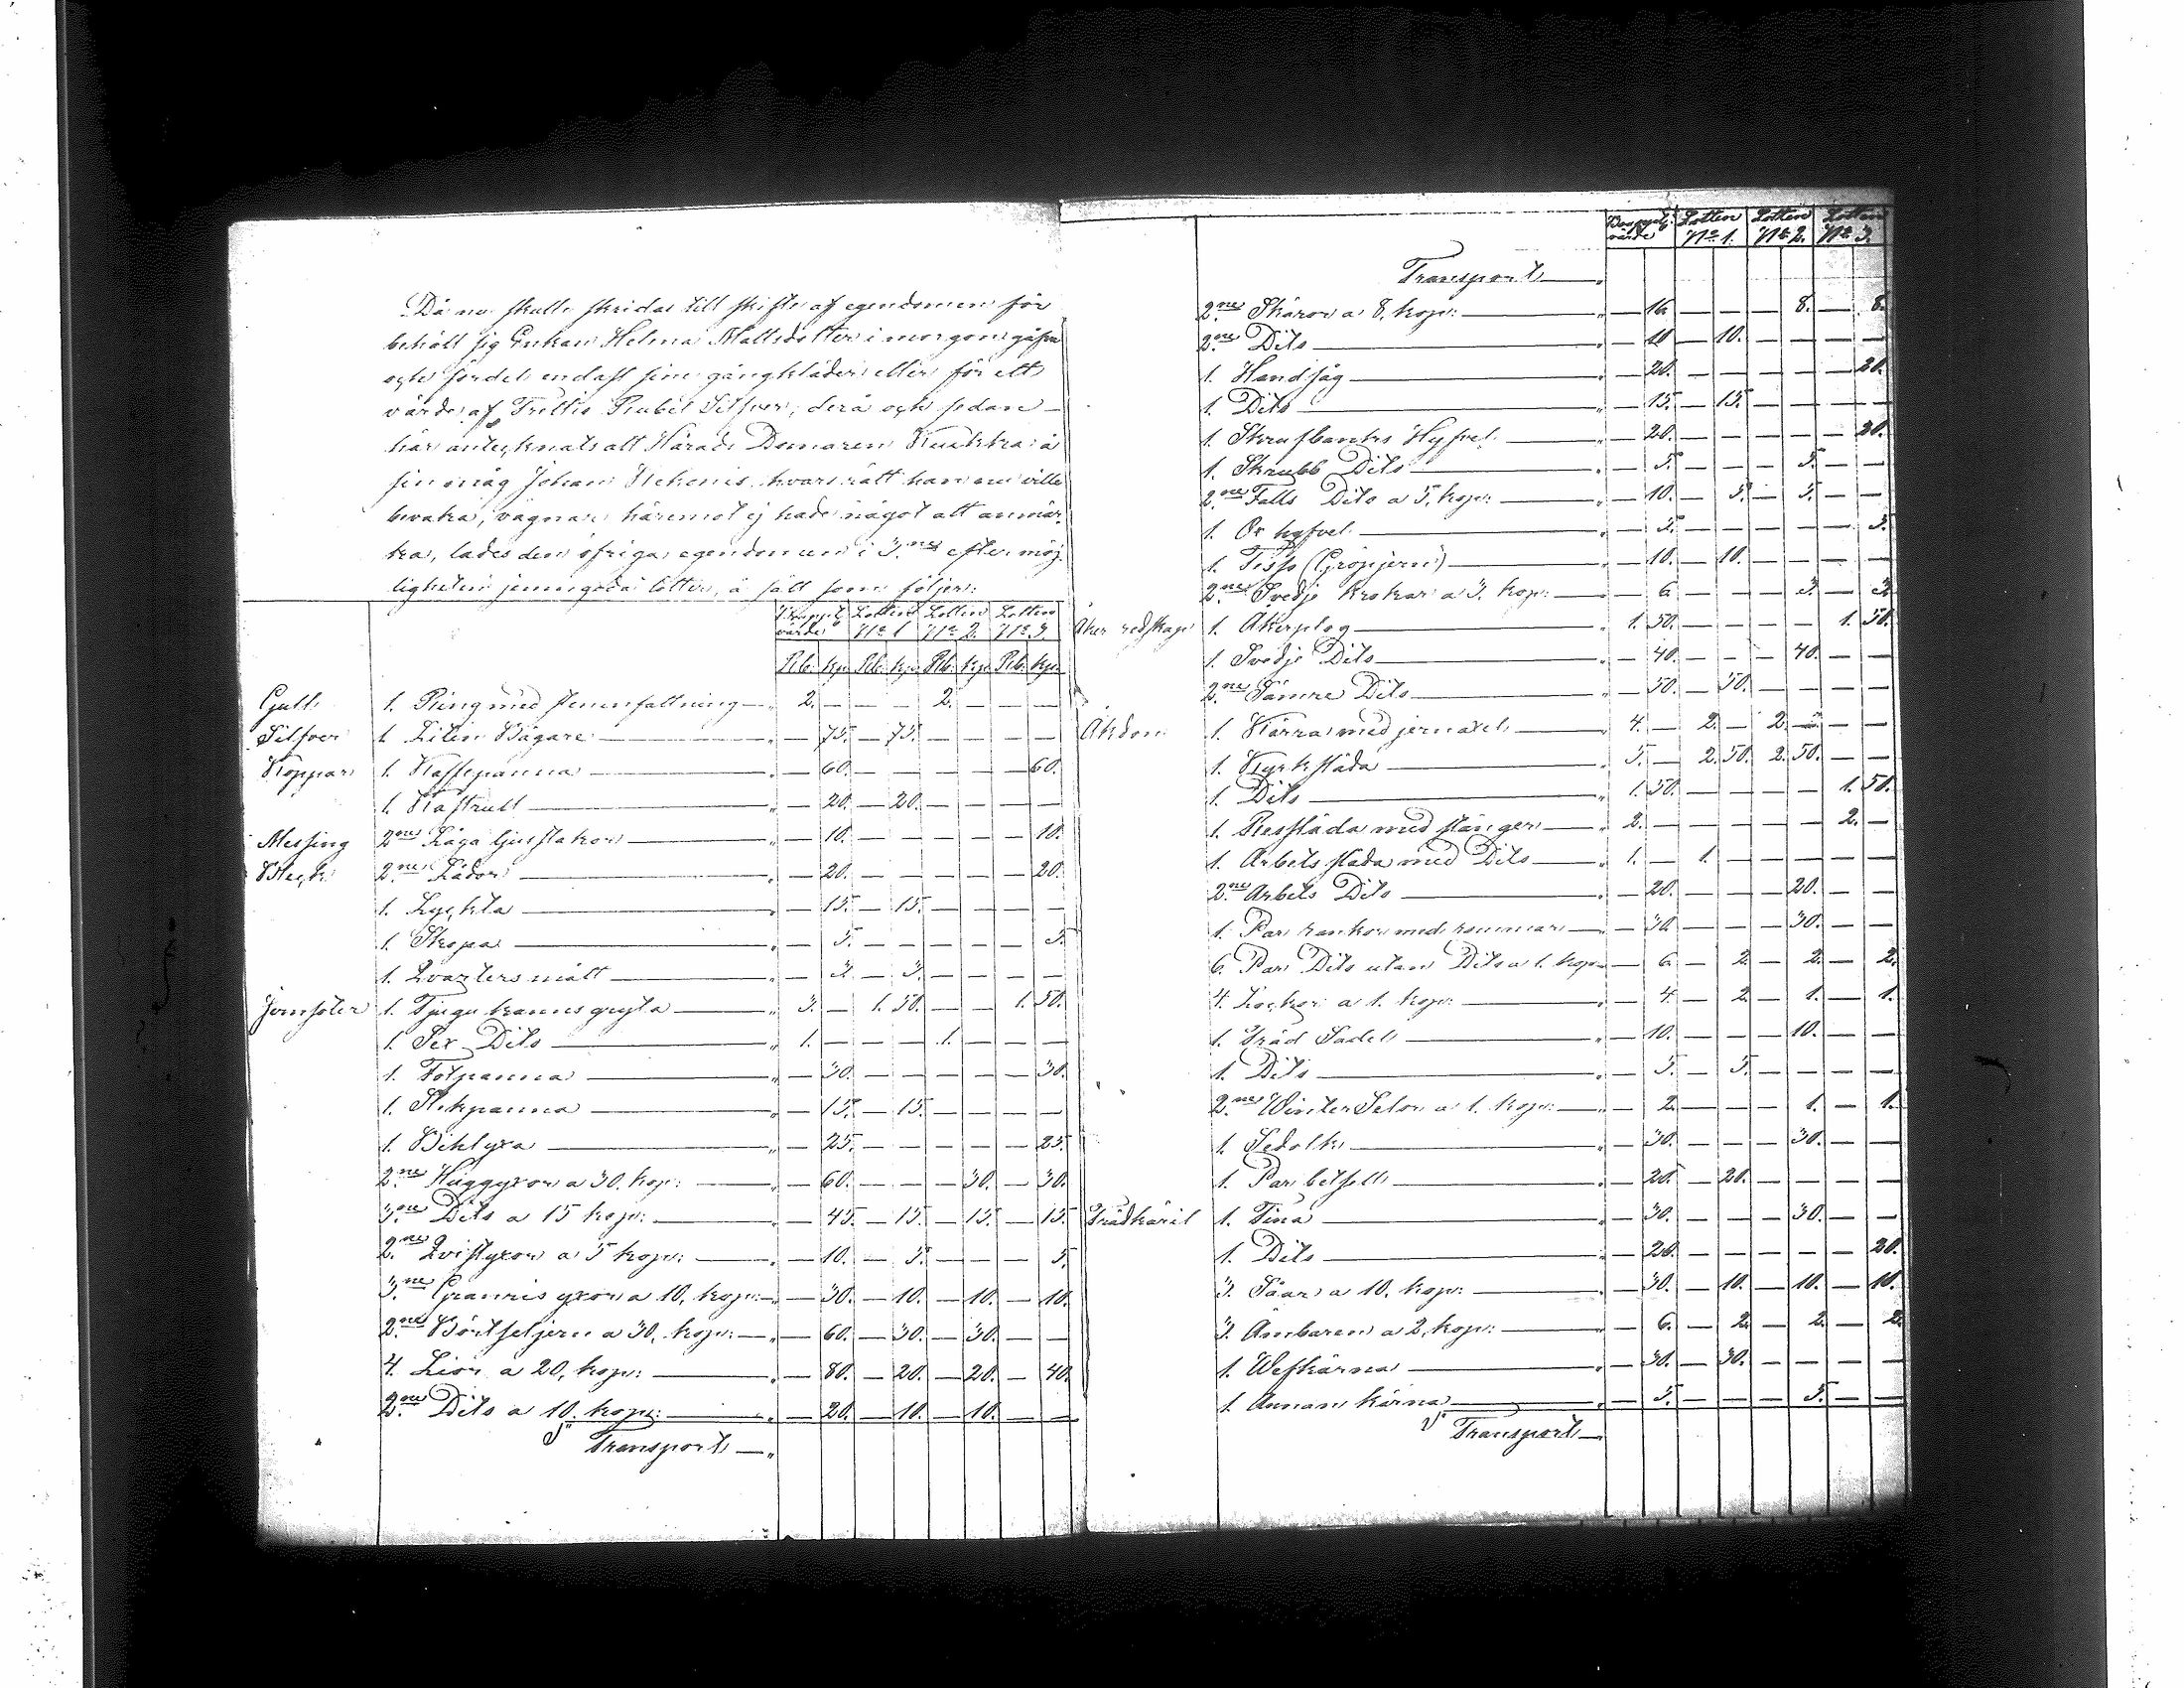 Då nu skulle skridas till skifte af egendomen för
behöll sig Enkan Helena Mattsdotter i morgongåfva
och fördel endast sina gångkläder eller för ett
värde af Trettio Rubel Silfver; derå och sedan
här antecknats att Härads Domaren Kuakka å
sin måg Johan wars rätt han nu ville
bevaka, vägnar häremot ej hade något att anmär-
ka, lades den öfriga egendomen i 3:ne efter möj-
ligheten jemngoda lotter, å sätt som följer:
Bouppt. värde Lotten No 1 Lotten No 2. Lotten No 3.
Rb. kp. Rb. kp. Rb. kp. Rb. kp.
Guld 1. Ring med stenenfattning — " 2. — — — 2. — — —
Silfver 1. Liten Bägare — " — 75. — 75. — — — —
Koppar 1. Kaffepanna — " — 60. — — — — — 60.
1. Kastrull — " — 20. — 20. — — — —
Messing 2:ne Låga ljusstakar — " — 10. — — — — — 10.
Bleck 2:ne Lådor — " — 20. — — — — — 20.
1. Lyckta — " — 15. — 15. — — — —
1. Skopa — " — 5. — — — — — 5.
1. Qvarters mått — " — 3. — 3. — — — —
Jernsaker 1. Tjugu kannis gryta — " 3. — 1. 50. — — 1. 50.
1. Sex Dito — " 1. — — — 1. — — —
1. Fotpanna — " — 30. — — — — — 30.
1. Stekpanna — " — 15. — 15. — — — —
1. Bilyxa — " — 25. — — — — — 25.
2:ne Huggyxor a 30. kop: — " — 60. — — — 30. — 30.
3:ne Dito a 15 kop: — " — 45. — 15. — 15. — 15.
2:ne Qvistyxor a 5 kop: — " — 10. — 5. — — — 5.
3:ne Granris yxor a 10. kop: — " — 30. — 10. — 10. — 10.
2:ne Böstseljern a 30. kop: — " — 60. — 30. — 30. — —
4. Lior a 20. kop: — " — 80. — 20. — 20. — 40.
2:ne Dito a 10. kop: — " — 20. — 10. — 10. — —
Transport — "
Bouppt. värde Lotten No 1. Lotten No 2. Lotten No 3.
Transport — "
2:ne Skäror a 8. kop: — " — 16. — — — 8. — 8.
2:ne Dito — " — 10 — 10. — — — —
1. Handsåg — " — 20. — — — — — 20.
1. Dito — " — 15. — 15. — — — —
1. Skrufbanks Hyfvel — " — 20. — — — — — 20.
1. Skrubb Dito — " — 5. — — — 5. — —
2:ne Falls Dito a 5. kop: — " — 10. — 5. — 5. — —
1. Or hyfvel — " — 5. — — — — — 5.
1. Tisso (Gröpjern) — " — 10. — 10. — — — —
2:ne Svedje krokar a 3. kop: — " — 6. — — — 3. — 3.
Åker redskap 1. Åkerplog — " 1. 50. — — — — 1. 50.
1. Svedje Dito — " — 40. — — — 40. — —
2:ne Sämre Dito — " — 50. — 50. — — — —
Åkdon 1. Kärra med jernaxel — " 4. — 2. — 2. — — —
1. Kyrksläda — " 5. — 2. 50. 2. 50. — —
1. Dito — " 1. 50. — — — — 1. 50.
1. Ressläda med stänger — " 2. — — — — — 2. —
1. Arbets släda med Dito — " 1. — 1. — — — — —
2:ne Arbets Dito — " — 20. — — — 20. — —
1. Par rankor med remmar — " — 30. — — — 30. — —
6. Par Dito utan Dito a 1. kop — " — 6. — 2. — 2. — 2.
4. Lockor a 1. kop: — " — 4. — 2. — 1. — 1.
1. Träd Sadel — " — 10. — — — 10. — —
1. Dito — " — 5. — 5. — — — —
2:ne Winter Selor a 1. kop: — " — 2. — — — 1. — 1.
1. Sedolk — " — 30. — — — 30. — —
1. Par betsell — " — 20. — 20. — — — —
Trädkäril 1. Tina — " — 30. — — — 30. — —
1. Dito — " — 20. — — — — — 20.
3. Såar a 10. kop: — " — 30. — 10. — 10. — 10.
3. Ämbaren a 2. kop: — " — 6. — 2. — 2. — 2.
1. Wefkärna — " — 30. — 30. — — — —
1. Annan kärna — " — 5. — — — 5. — —
Transport — "